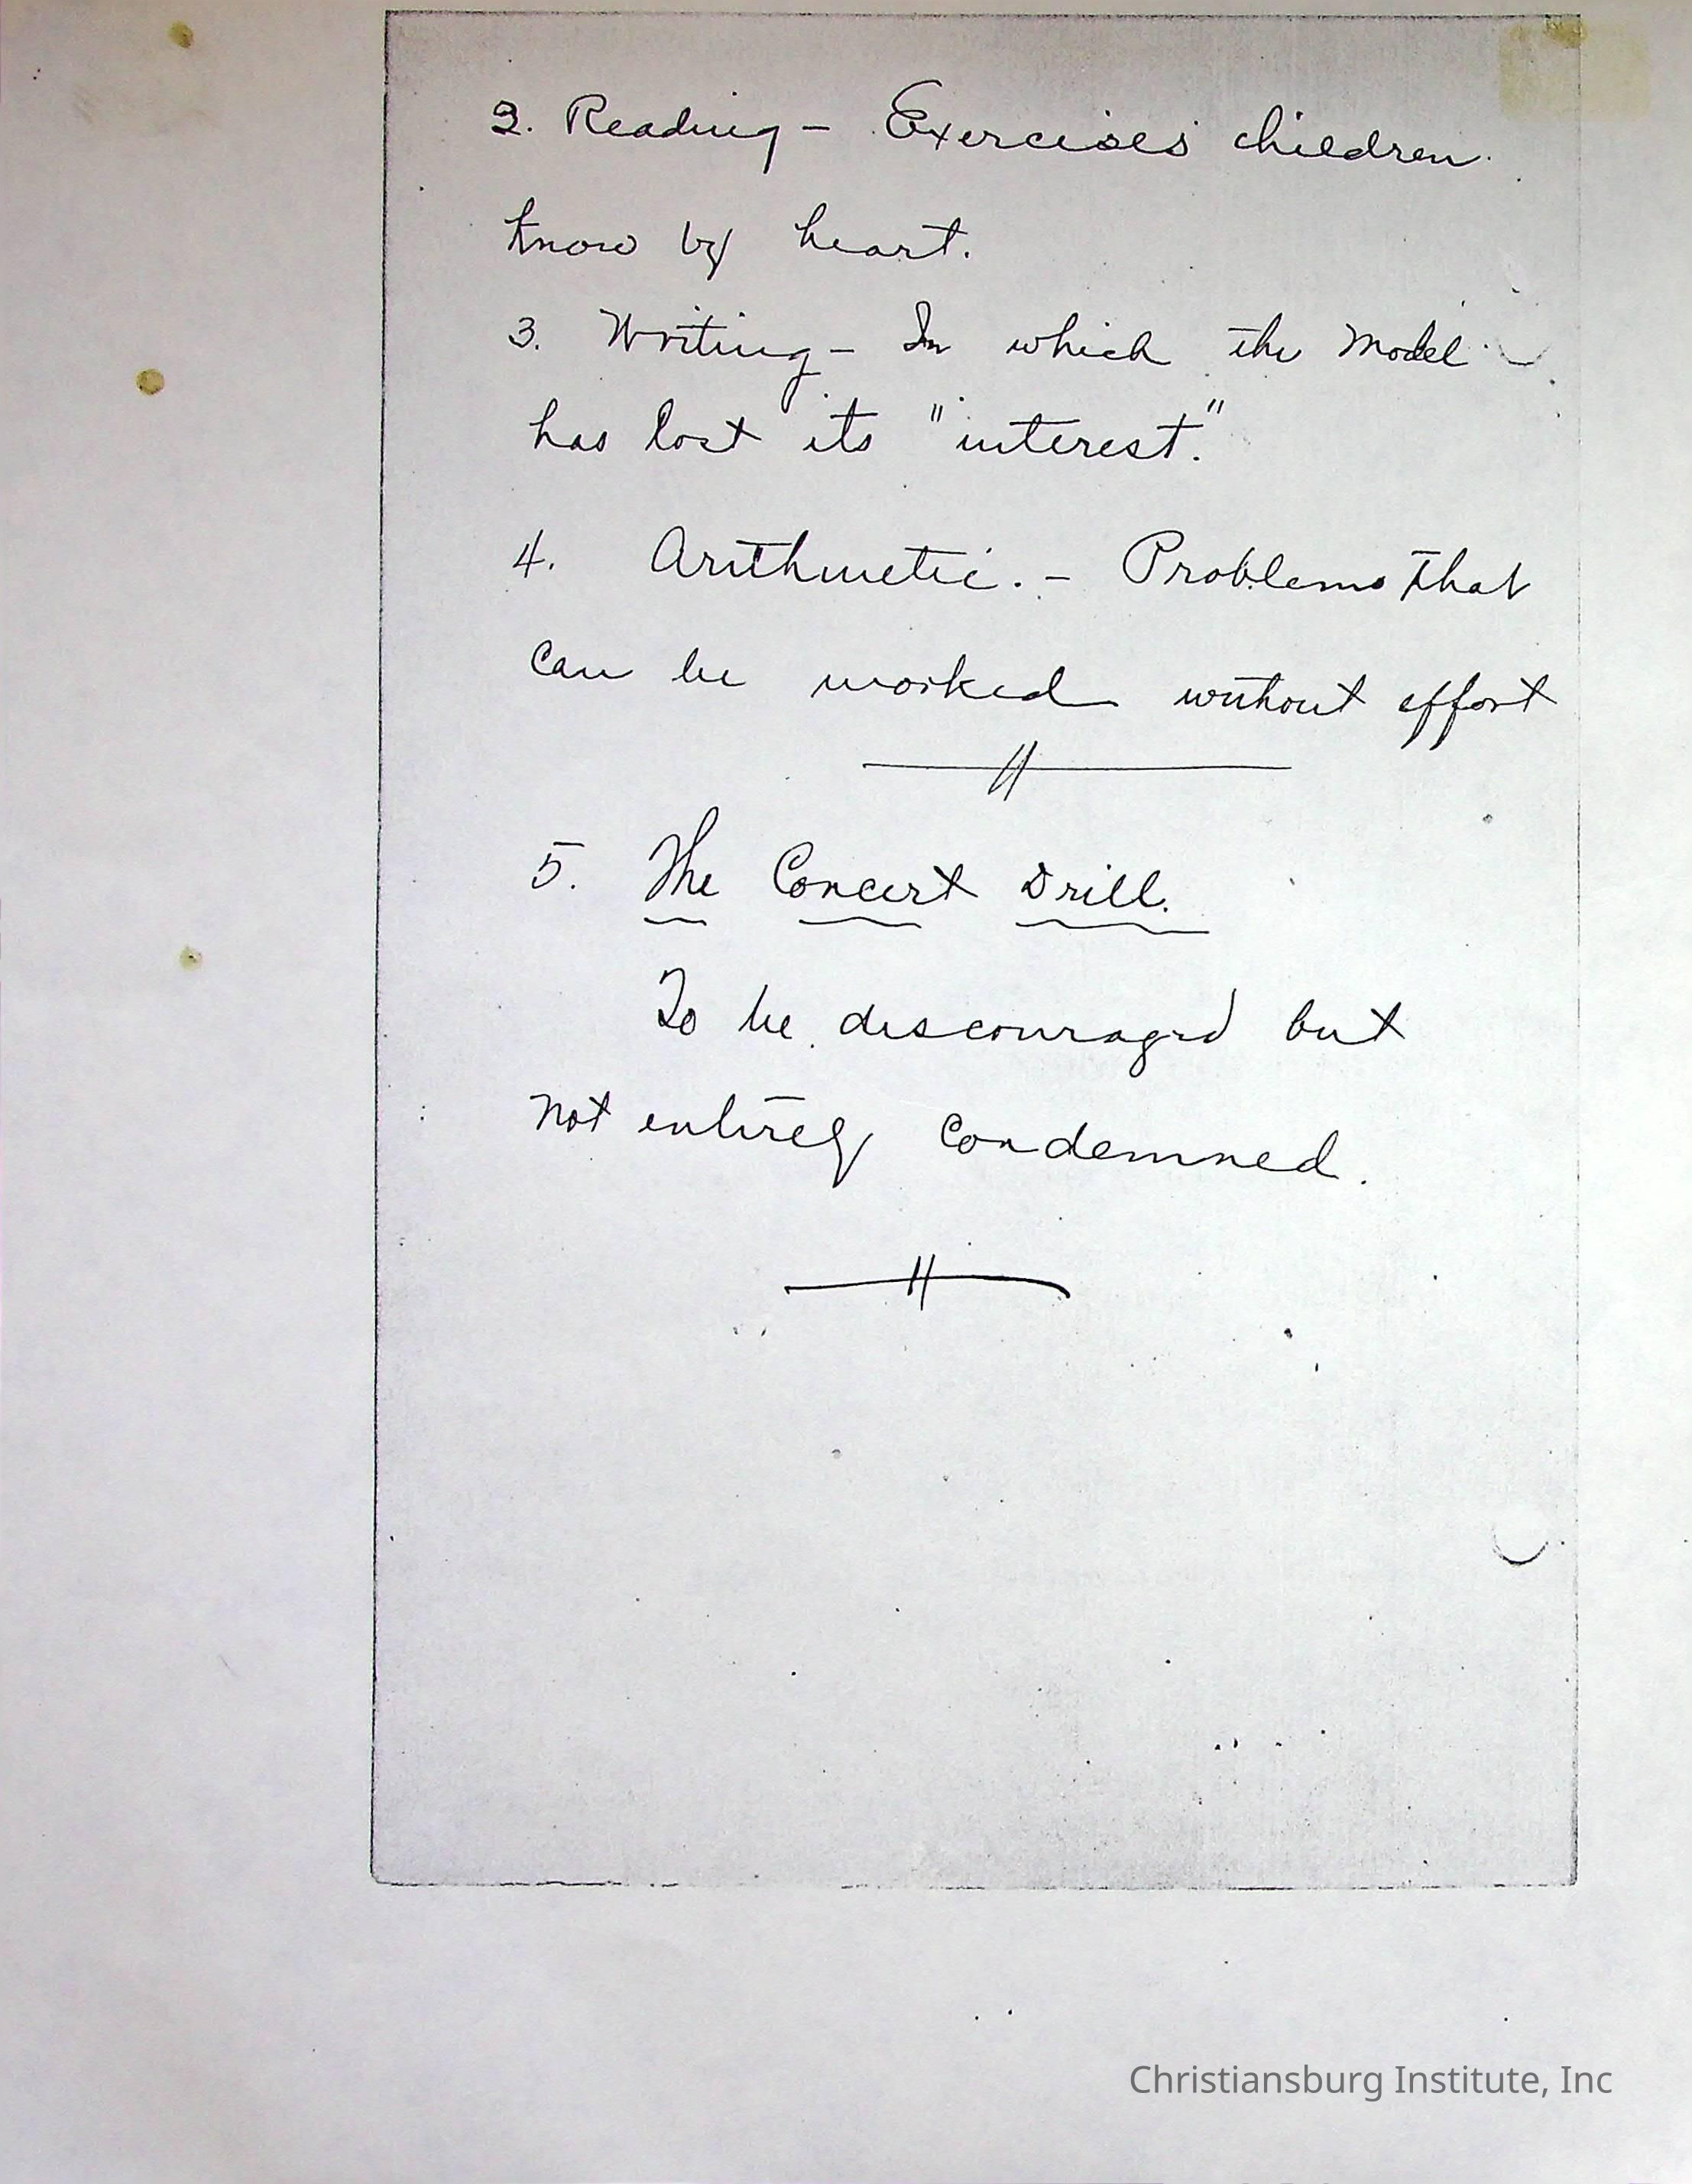 2. Reading - Exercises children
know by heart.
3. Writing - In which the Model
has lost its "interest."
4. Arithmetic. - Problems that
can be worked without effort
5. The Concert Drill.
To be discouraged but
not entirely condemned.
Christiansburg Institute, Inc